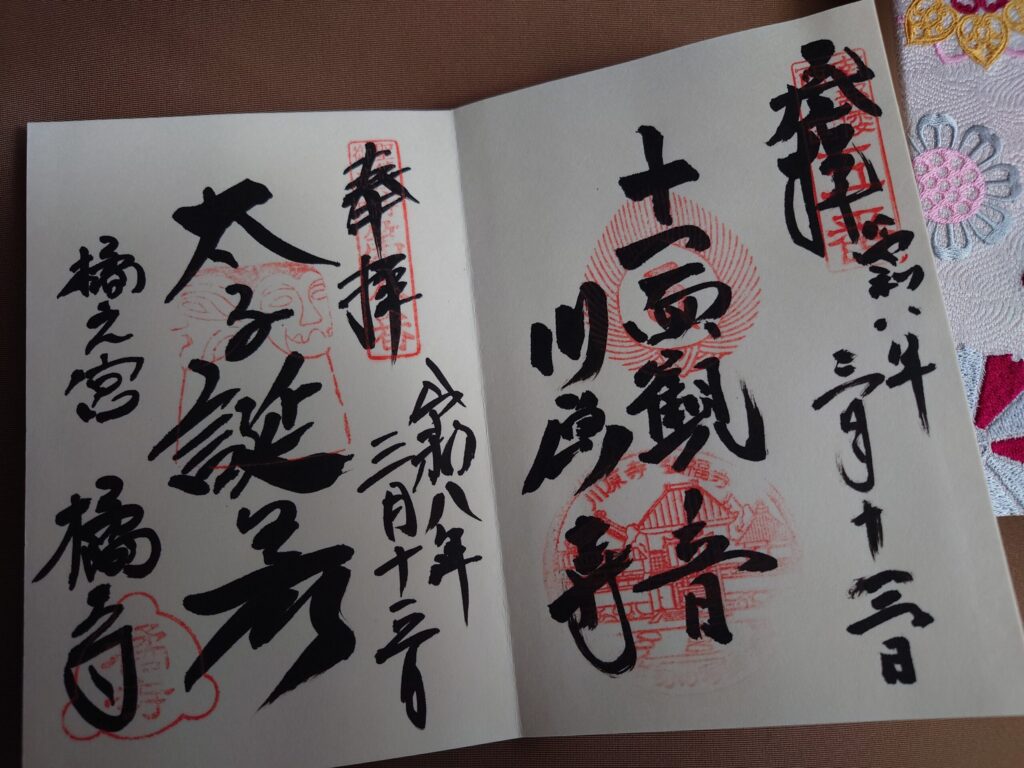 奉拝
令和八年
三月十三日
十一面観音
川原寺
川原寺
奉拝
令和八年
三月十三日
太子誕生所
橘之宮
橘寺